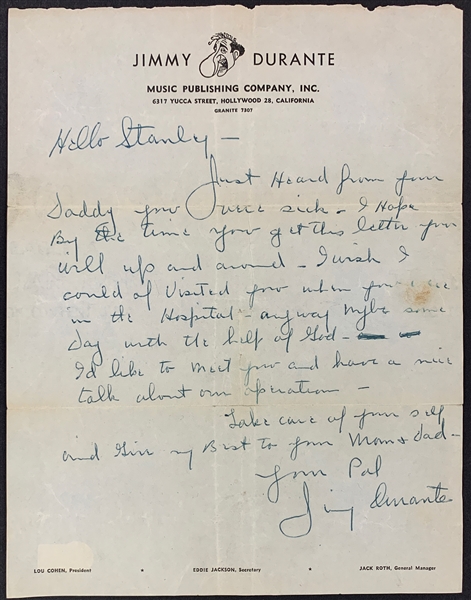 JIMMY DURANTE
MUSIC PUBLISHING COMPANY, INC.
6317 YUCCA STREET, HOLLYWOOD 28, CALIFORNIA
GRANITE 7307
Hello Stanley —
Just Heard from your
Daddy you were sick - I Hope
By the time you get this letter you
will up and around - I wish I
could of Visited you when you were
in the Hospital - anyway Mybe some
Day with the help of God -
I'd like to meet you and have a nice
talk about our operation -
Take care of your self
and Give my Best to your Mom & Dad -
Your Pal
Jimmy Durante
LOU COHEN, President • EDDIE JACKSON, Secretary • JACK ROTH, General Manager